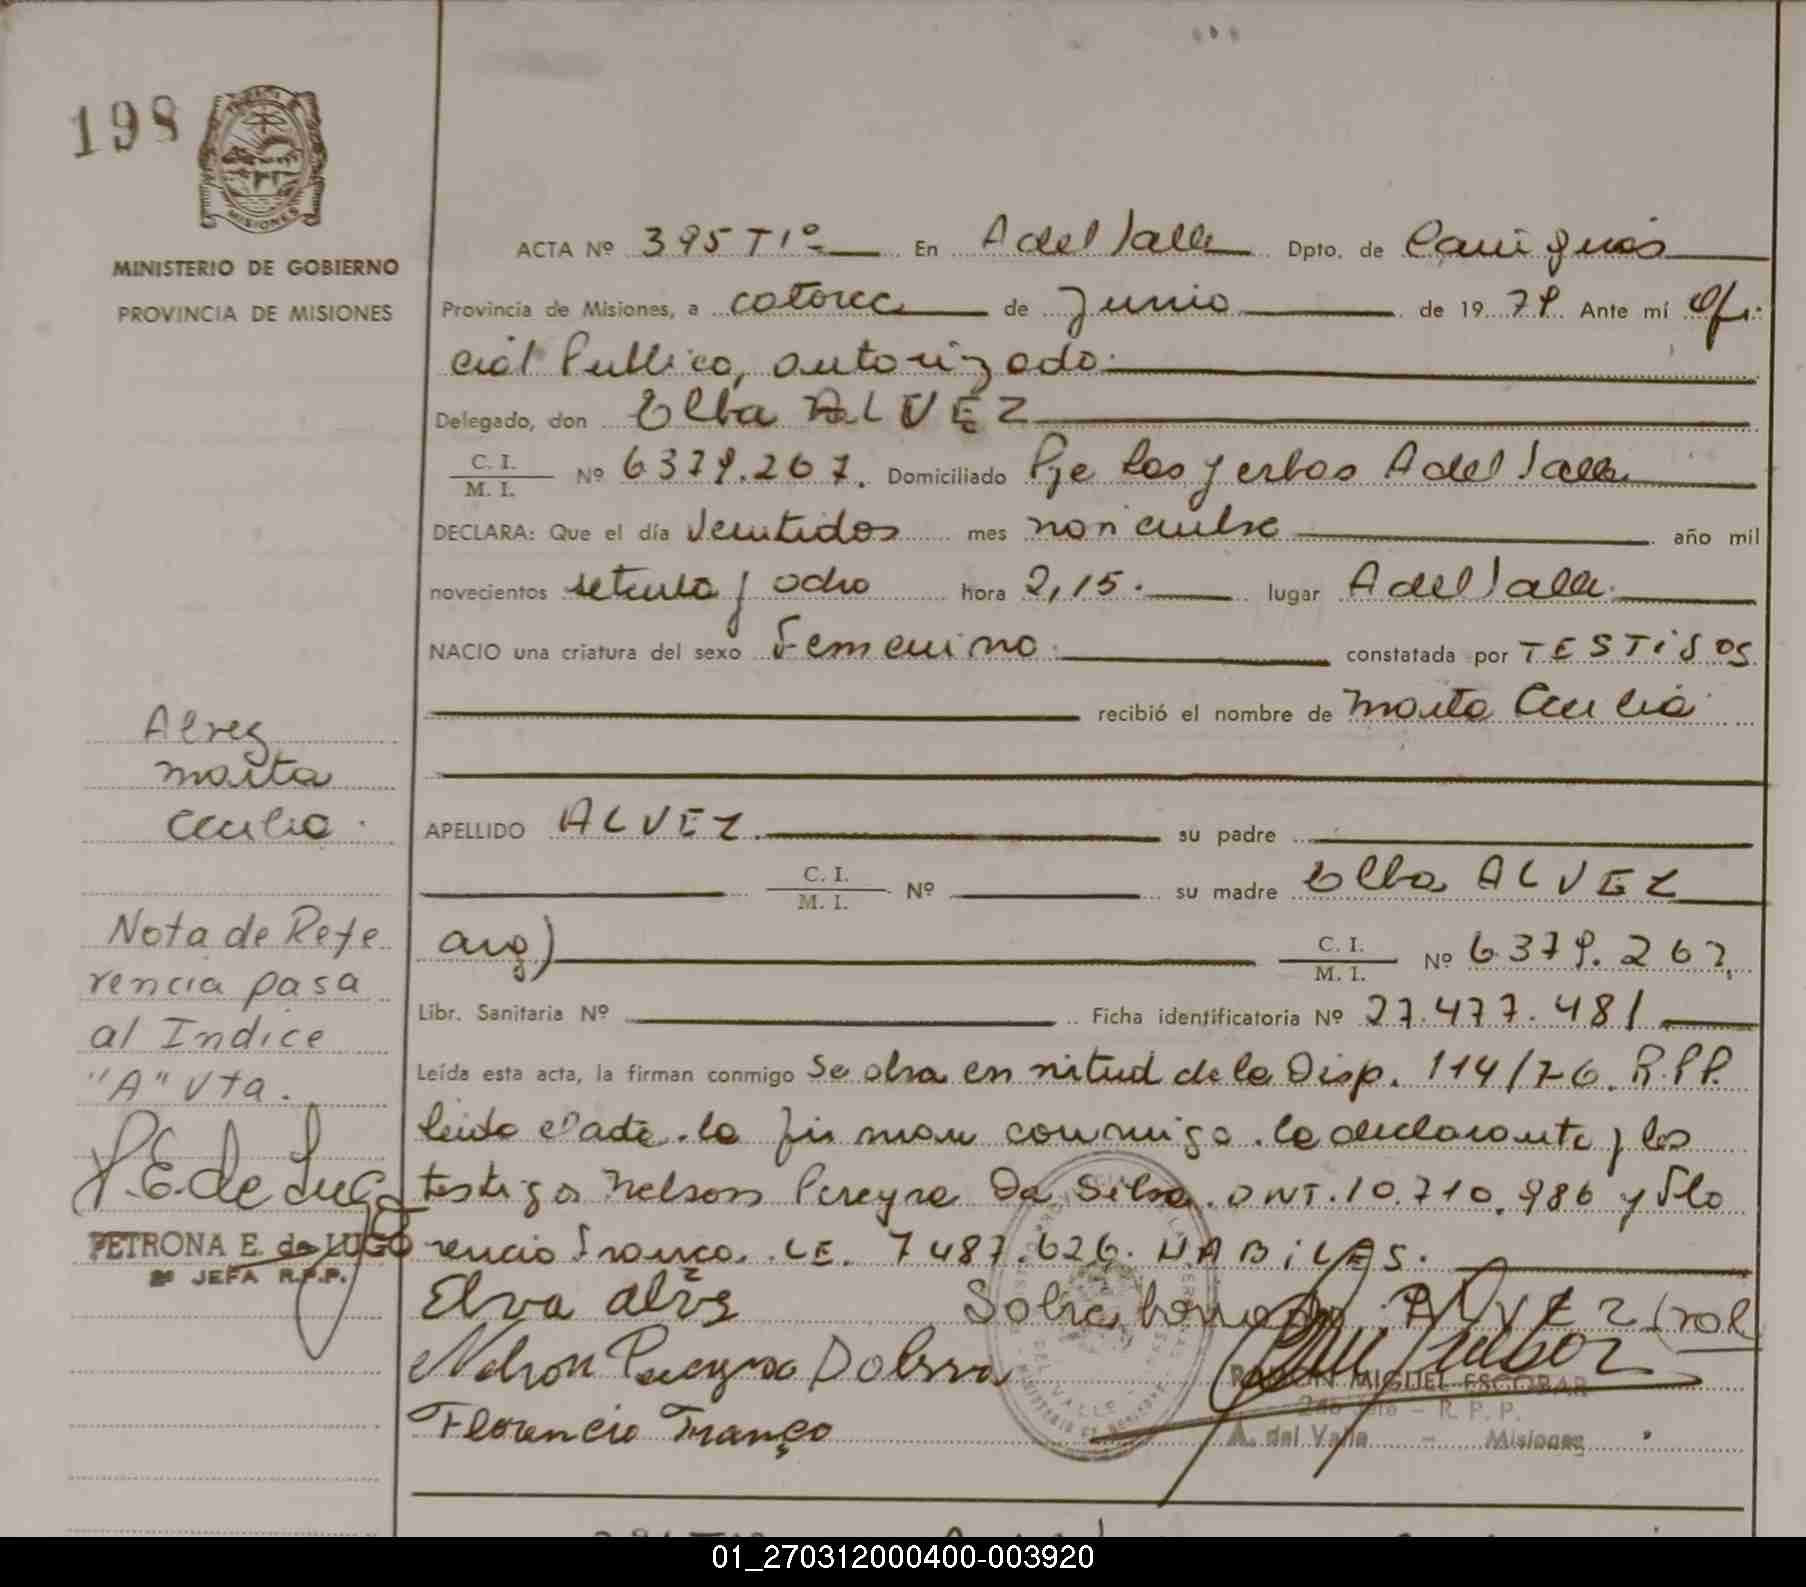 198
MISIONES
MINISTERIO DE GOBIERNO
PROVINCIA DE MISIONES
ACTA Nº 395 T1º En A del Valle Dpto. de Cainguás
Provincia de Misiones, a catorce de Junio de 1979. Ante mí Ofi-
cial Publico, autorizado.
Delegado, don Elba ALVEZ
C. I.
M. I. Nº 6379.267. Domiciliado Pje Las yerbas A del Valle
DECLARA: Que el día Veintidos mes noviembre año mil
novecientos setenta y ocho hora 2,15. lugar A del Valle.
NACIO una criatura del sexo Femenino. constatada por TESTIGOS
recibió el nombre de Marta Cecilia
APELLIDO ALVEZ. su padre
C. I.
M. I. Nº su madre Elba ALVEZ
arg) C. I.
M. I. Nº 6379.267.
Libr. Sanitaria Nº Ficha identificatoria Nº 27.477.481
Leída esta acta, la firman conmigo Se obra en virtud de la Disp. 114/76. R.P.P.
leida el acta. la firman conmigo. la declarante y los
testigos Nelson Pereyra Da Silva. DNI. 10.710.986 y Flo
rencio Franco. LE. 7487.626. HABILES.
Elva alvez Sobre borrado: ALVEZ (vale
Nelson Pereyra Dalsiva
Florencio Franco
RAMON MIGUEL ESCOBAR
2do Jefe - R. P. P.
A. del Valle - Misiones
Alvez
Marta
Cecilia.
Nota de Refe
rencia pasa
al Indice
"A" Vta.
P.E. de Lugo
PETRONA E. de LUGO
2ª JEFA R.P.P.
01_270312000400-003920